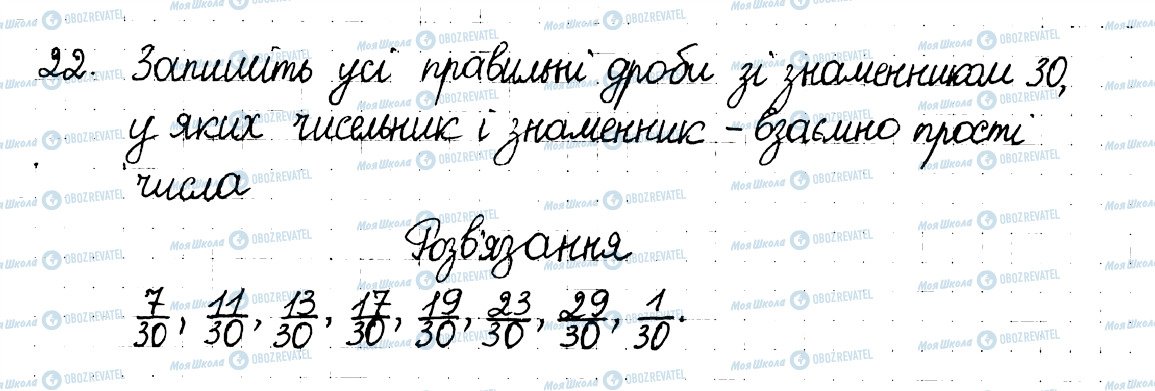 22. Запишіть усі правильні дроби зі знаменником 30,
у яких чисельник і знаменник – взаємно прості
числа
Розв'язання
7/30, 11/30, 13/30, 17/30, 19/30, 23/30, 29/30, 1/30.
МояШкола OBOZREVATEL